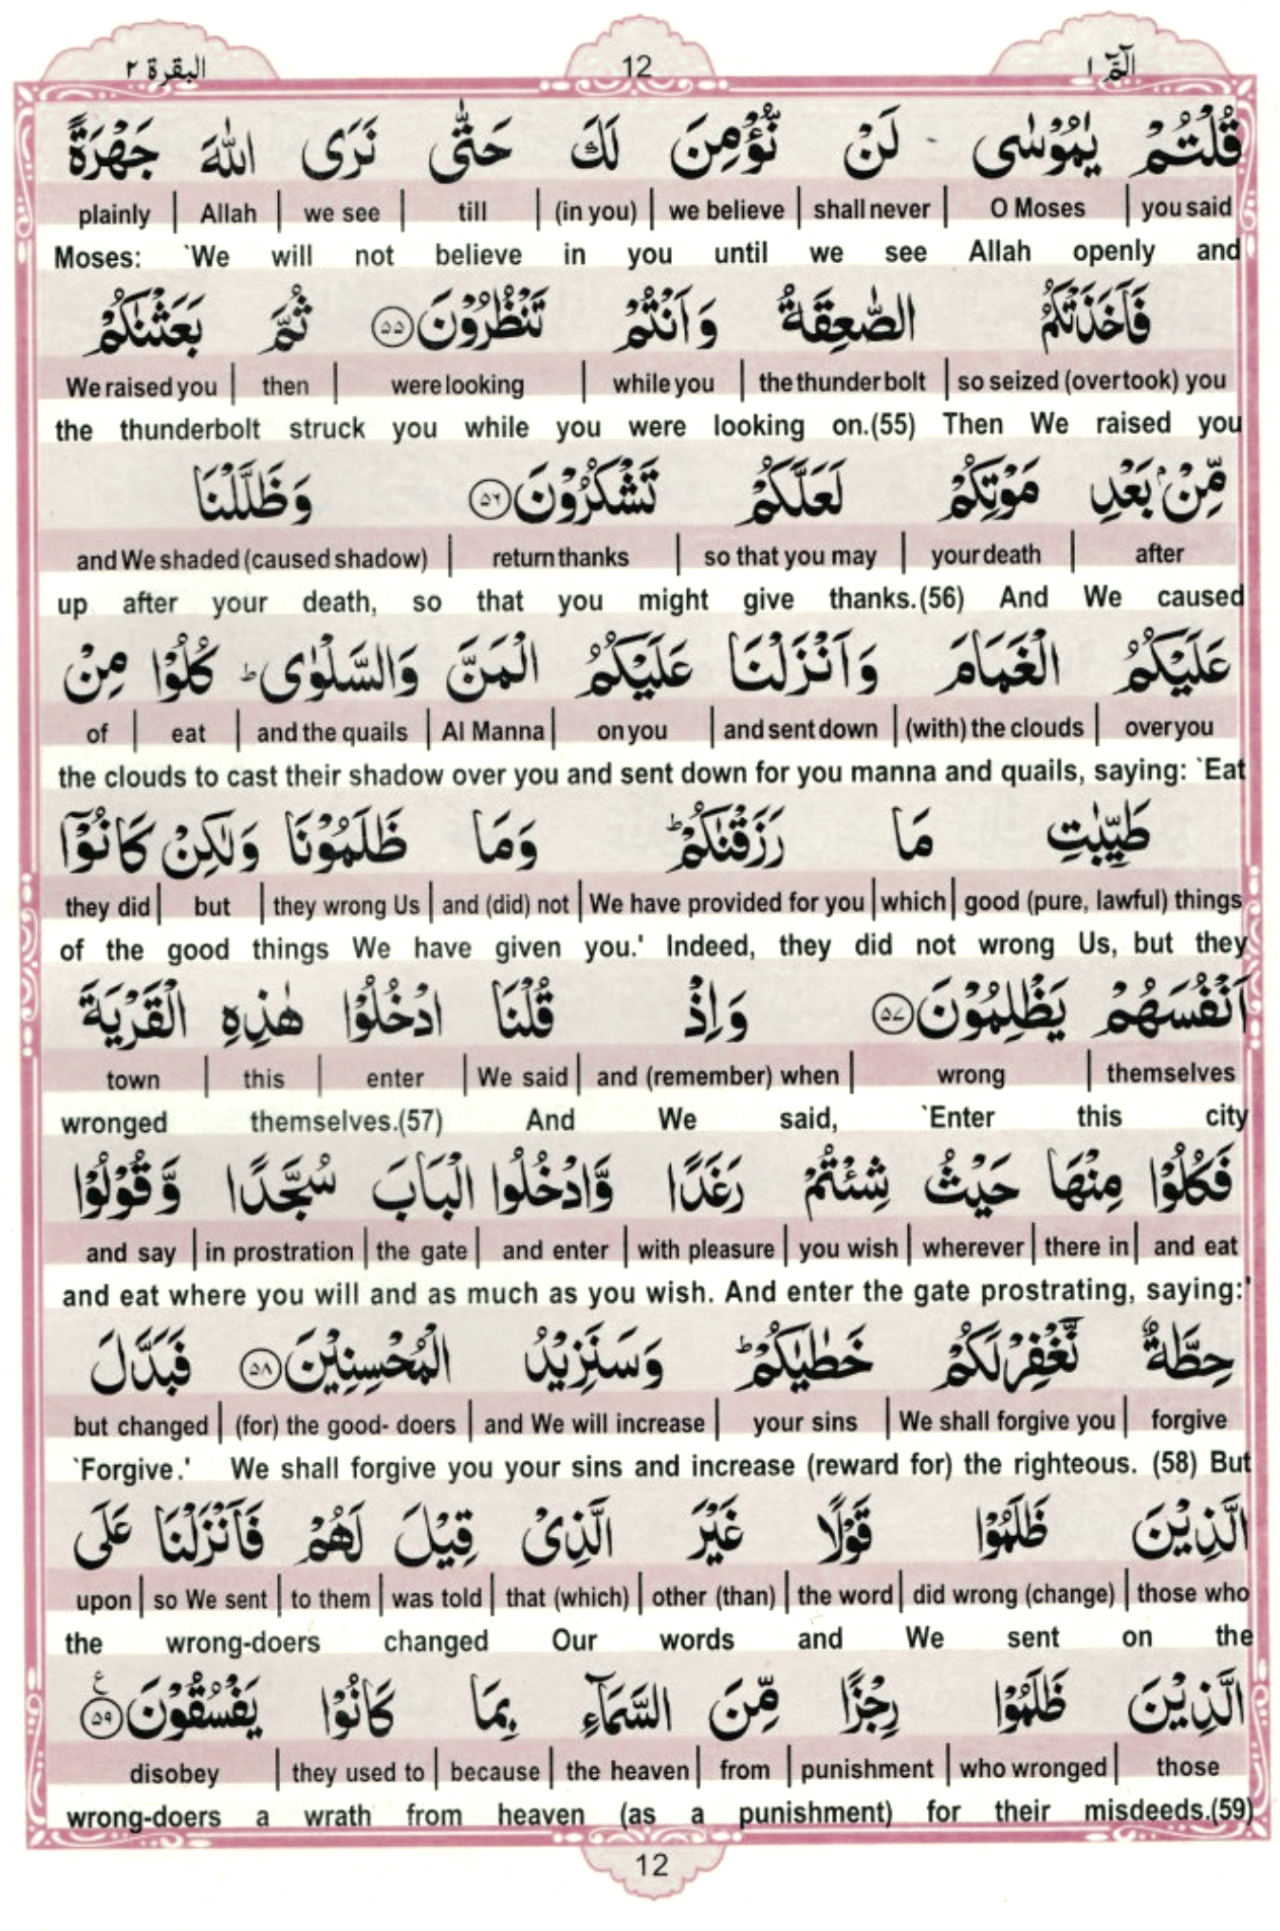 الٓمّٓ ١ 12 البقرة ٢
قُلْتُمْ يٰمُوْسٰى لَنْ نُّؤْمِنَ لَكَ حَتّٰى نَرَى اللّٰهَ جَهْرَةً
plainly | Allah | we see | till | (in you) | we believe | shall never | O Moses | you said
Moses: `We will not believe in you until we see Allah openly and
فَاَخَذَتْكُمُ الصّٰعِقَةُ وَاَنْتُمْ تَنْظُرُوْنَ ۝٥٥ ثُمَّ بَعَثْنٰكُمْ
We raised you | then | were looking | while you | the thunder bolt | so seized (overtook) you
the thunderbolt struck you while you were looking on.(55) Then We raised you
مِّنْۢ بَعْدِ مَوْتِكُمْ لَعَلَّكُمْ تَشْكُرُوْنَ ۝٥٦ وَظَلَّلْنَا
and We shaded (caused shadow) | return thanks | so that you may | your death | after
up after your death, so that you might give thanks.(56) And We caused
عَلَيْكُمُ الْغَمَامَ وَاَنْزَلْنَا عَلَيْكُمُ الْمَنَّ وَالسَّلْوٰى ؕ كُلُوْا مِنْ
of | eat | and the quails | Al Manna | on you | and sent down | (with) the clouds | over you
the clouds to cast their shadow over you and sent down for you manna and quails, saying: `Eat
طَيِّبٰتِ مَا رَزَقْنٰكُمْ ؕ وَمَا ظَلَمُوْنَا وَلٰكِنْ كَانُوْٓا
they did | but | they wrong Us | and (did) not | We have provided for you | which | good (pure, lawful) things
of the good things We have given you.' Indeed, they did not wrong Us, but they
اَنْفُسَهُمْ يَظْلِمُوْنَ ۝٥٧ وَاِذْ قُلْنَا ادْخُلُوْا هٰذِهِ الْقَرْيَةَ
town | this | enter | We said | and (remember) when | wrong | themselves
wronged themselves.(57) And We said, `Enter this city
فَكُلُوْا مِنْهَا حَيْثُ شِئْتُمْ رَغَدًا وَّادْخُلُوا الْبَابَ سُجَّدًا وَّقُوْلُوْا
and say | in prostration | the gate | and enter | with pleasure | you wish | wherever | there in | and eat
and eat where you will and as much as you wish. And enter the gate prostrating, saying:'
حِطَّةٌ نَّغْفِرْ لَكُمْ خَطٰيٰكُمْ ؕ وَسَنَزِيْدُ الْمُحْسِنِيْنَ ۝٥٨ فَبَدَّلَ
but changed | (for) the good- doers | and We will increase | your sins | We shall forgive you | forgive
`Forgive.' We shall forgive you your sins and increase (reward for) the righteous. (58) But
الَّذِيْنَ ظَلَمُوْا قَوْلًا غَيْرَ الَّذِيْ قِيْلَ لَهُمْ فَاَنْزَلْنَا عَلَى
upon | so We sent | to them | was told | that (which) | other (than) | the word | did wrong (change) | those who
the wrong-doers changed Our words and We sent on the
الَّذِيْنَ ظَلَمُوْا رِجْزًا مِّنَ السَّمَآءِ بِمَا كَانُوْا يَفْسُقُوْنَ ۝٥٩ ع
disobey | they used to | because | the heaven | from | punishment | who wronged | those
wrong-doers a wrath from heaven (as a punishment) for their misdeeds.(59)
12